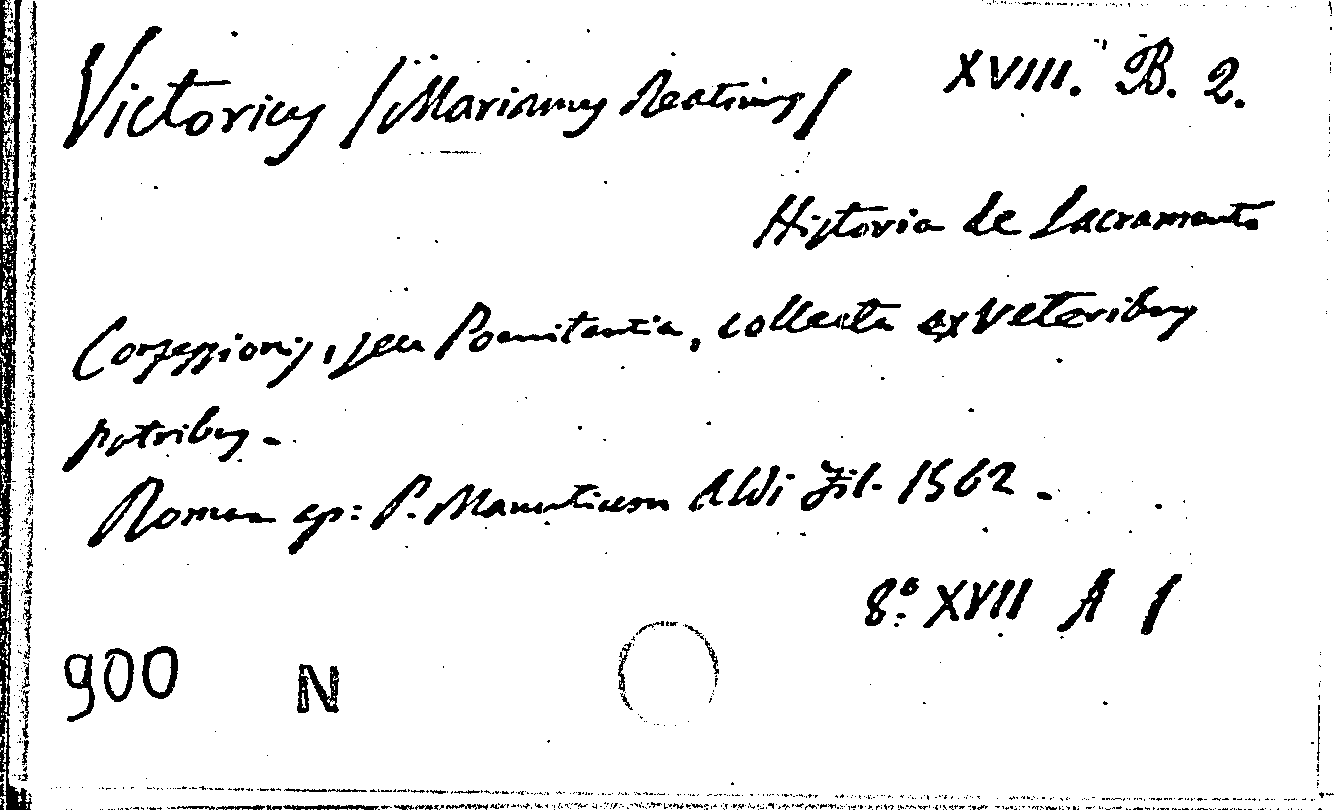 Victorius /Marianus Reatinus/ XVIII. B. 2.
Historia de Sacramento
Confessionis, seu Poenitentia, collecta ex Veteribus
patribus.
Romae ap: P. Manutium Aldi Fil. 1562.
8° XVII A 1
900 N